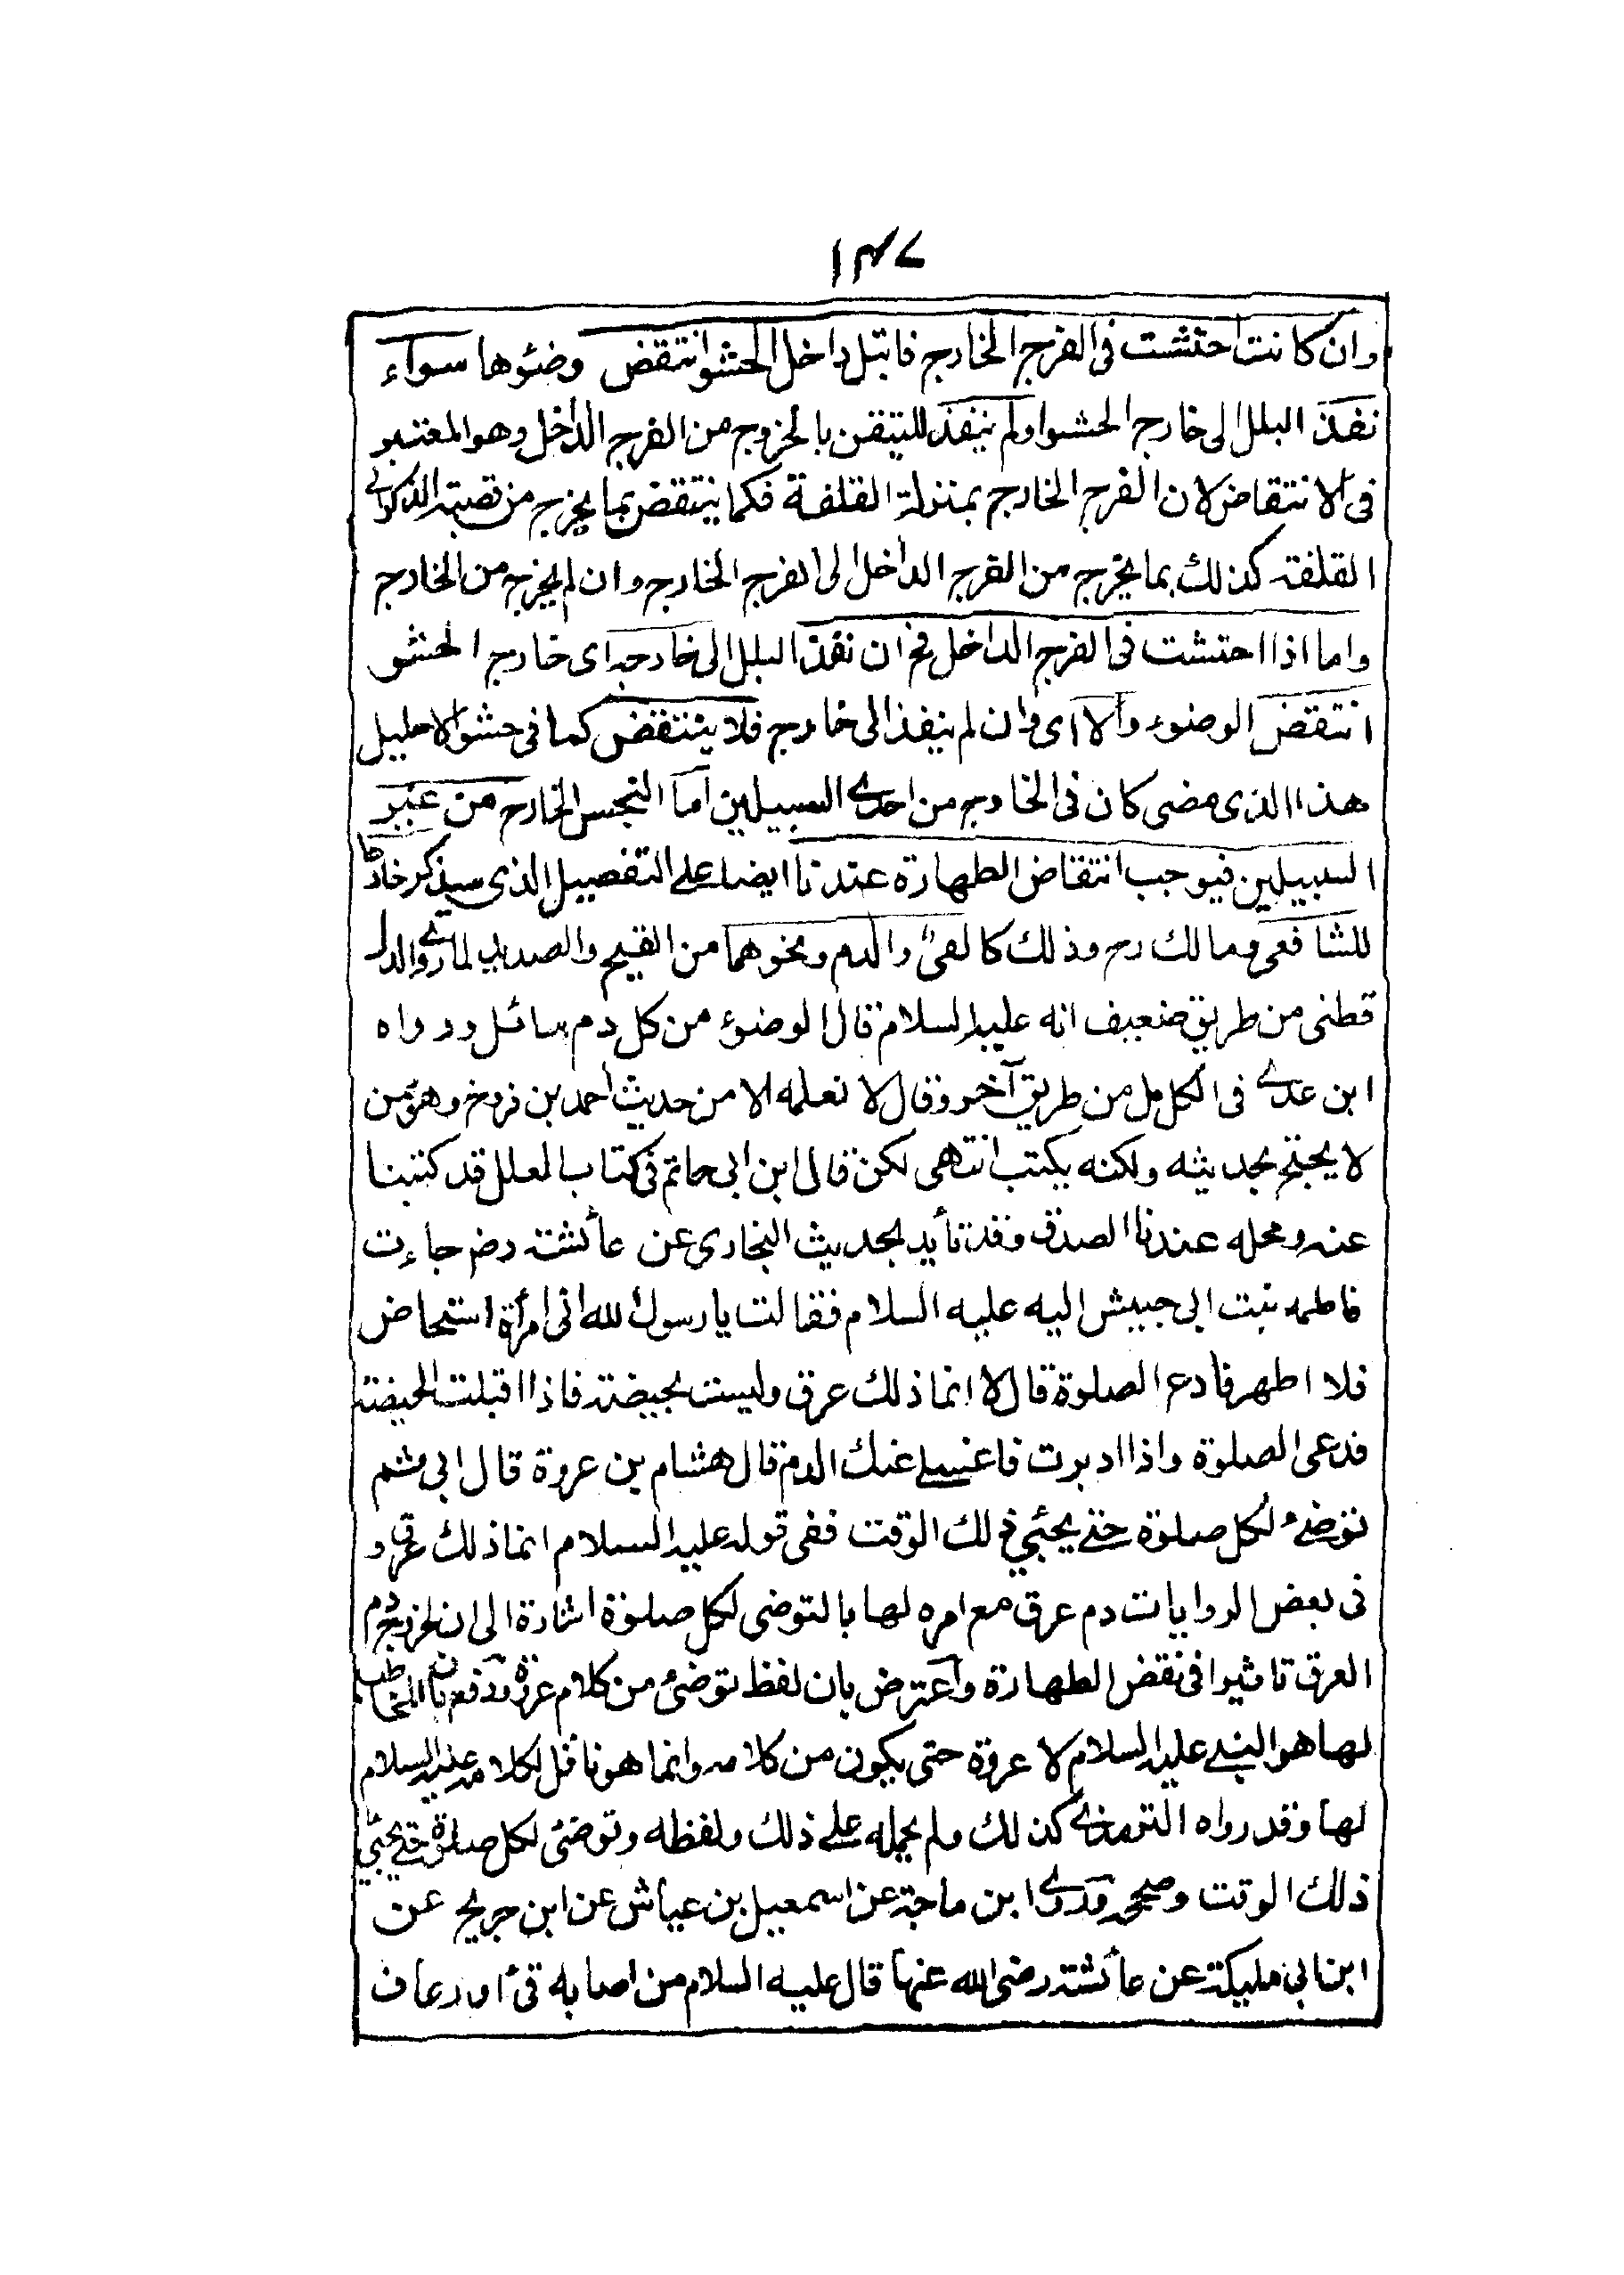 ١٤٧
وان كانت احتشت فى الفرج الخارج فابتل داخل الحشو انتقض وضوءها سواء
نفذ البلل الى خارج الحشو اولم ينفذ للتيقن بالخروج من الفرج الداخل وهو المعتبر
فى الانتقاض لان الفرج الخارج بمنزلة القلفة فكما ينتقض بما يخرج من قصبة الذكر الى
القلفة كذلك بما يخرج من الفرج الداخل الى الفرج الخارج وان لم يخرج من الخارج
واما اذا احتشت فى الفرج الداخل فح ان نفذ البلل الى خارجه اى خارج الحشو
انتقض الوضوء والا اى وان لم ينفذ الى خارج فلا ينتقض كما فى حشو الاحليل
هذا الذى مضى كان فى الخارج من احدى السبيلين اما النجس الخارج من غير
السبيلين فيوجب انتقاض الطهارة عندنا ايضا على التفصيل الذى سيذكر خلافا
للشافعى ومالك رح وذلك كالقئ والدم ونحوهما من القيح والصديد لما روى الدار
قطنى من طريق ضعيف انه عليه السلام قال الوضوء من كل دم سائل ورواه
ابن عدى فى الكامل من طريق آخر وقال لا نعلمه الا من حديث احمد بن فروخ وهو من
لا يحتج بحديثه ولكنه يكتب انتهى لكن قال ابن ابى حاتم فى كتاب العلل قد كتبنا
عنه ومحله عندنا الصدق وقد تأيد بحديث البخارى عن عائشة رض جاءت
فاطمه بنت ابى حبيش اليه عليه السلام فقالت يا رسول الله انى امرأة استحاض
فلا اطهر فادع الصلوة قال لا انما ذلك عرق وليست بحيضة فاذا اقبلت الحيضة
فدعى الصلوة واذا ادبرت فاغسلى عنك الدم قال هشام بن عروة قال ابى ثم
توضئ لكل صلوة حتى يجئ ذلك الوقت ففى قوله عليه السلام انما ذلك عرق و
فى بعض الروايات دم عرق مع امره لها بالتوضى لكل صلوة اشارة الى ان لخروج دم
العرق تاثيرا فى نقض الطهارة واعترض بان لفظ توضئ من كلام عروة ودفع بان المخاطب
لها هو النبى عليه السلام لا عروة حتى يكون من كلامه وانما هو ناقل لكلامه عليه السلام
لها وقد رواه الترمذى كذلك ولم يحمله على ذلك ولفظه وتوضئ لكل صلوة حتى يجئ
ذلك الوقت وصححه وروى ابن ماجة عن اسمعيل بن عياش عن ابن جريج عن
ابن ابى مليكة عن عائشة رضى الله عنها قال عليه السلام من اصابه قئ او رعاف